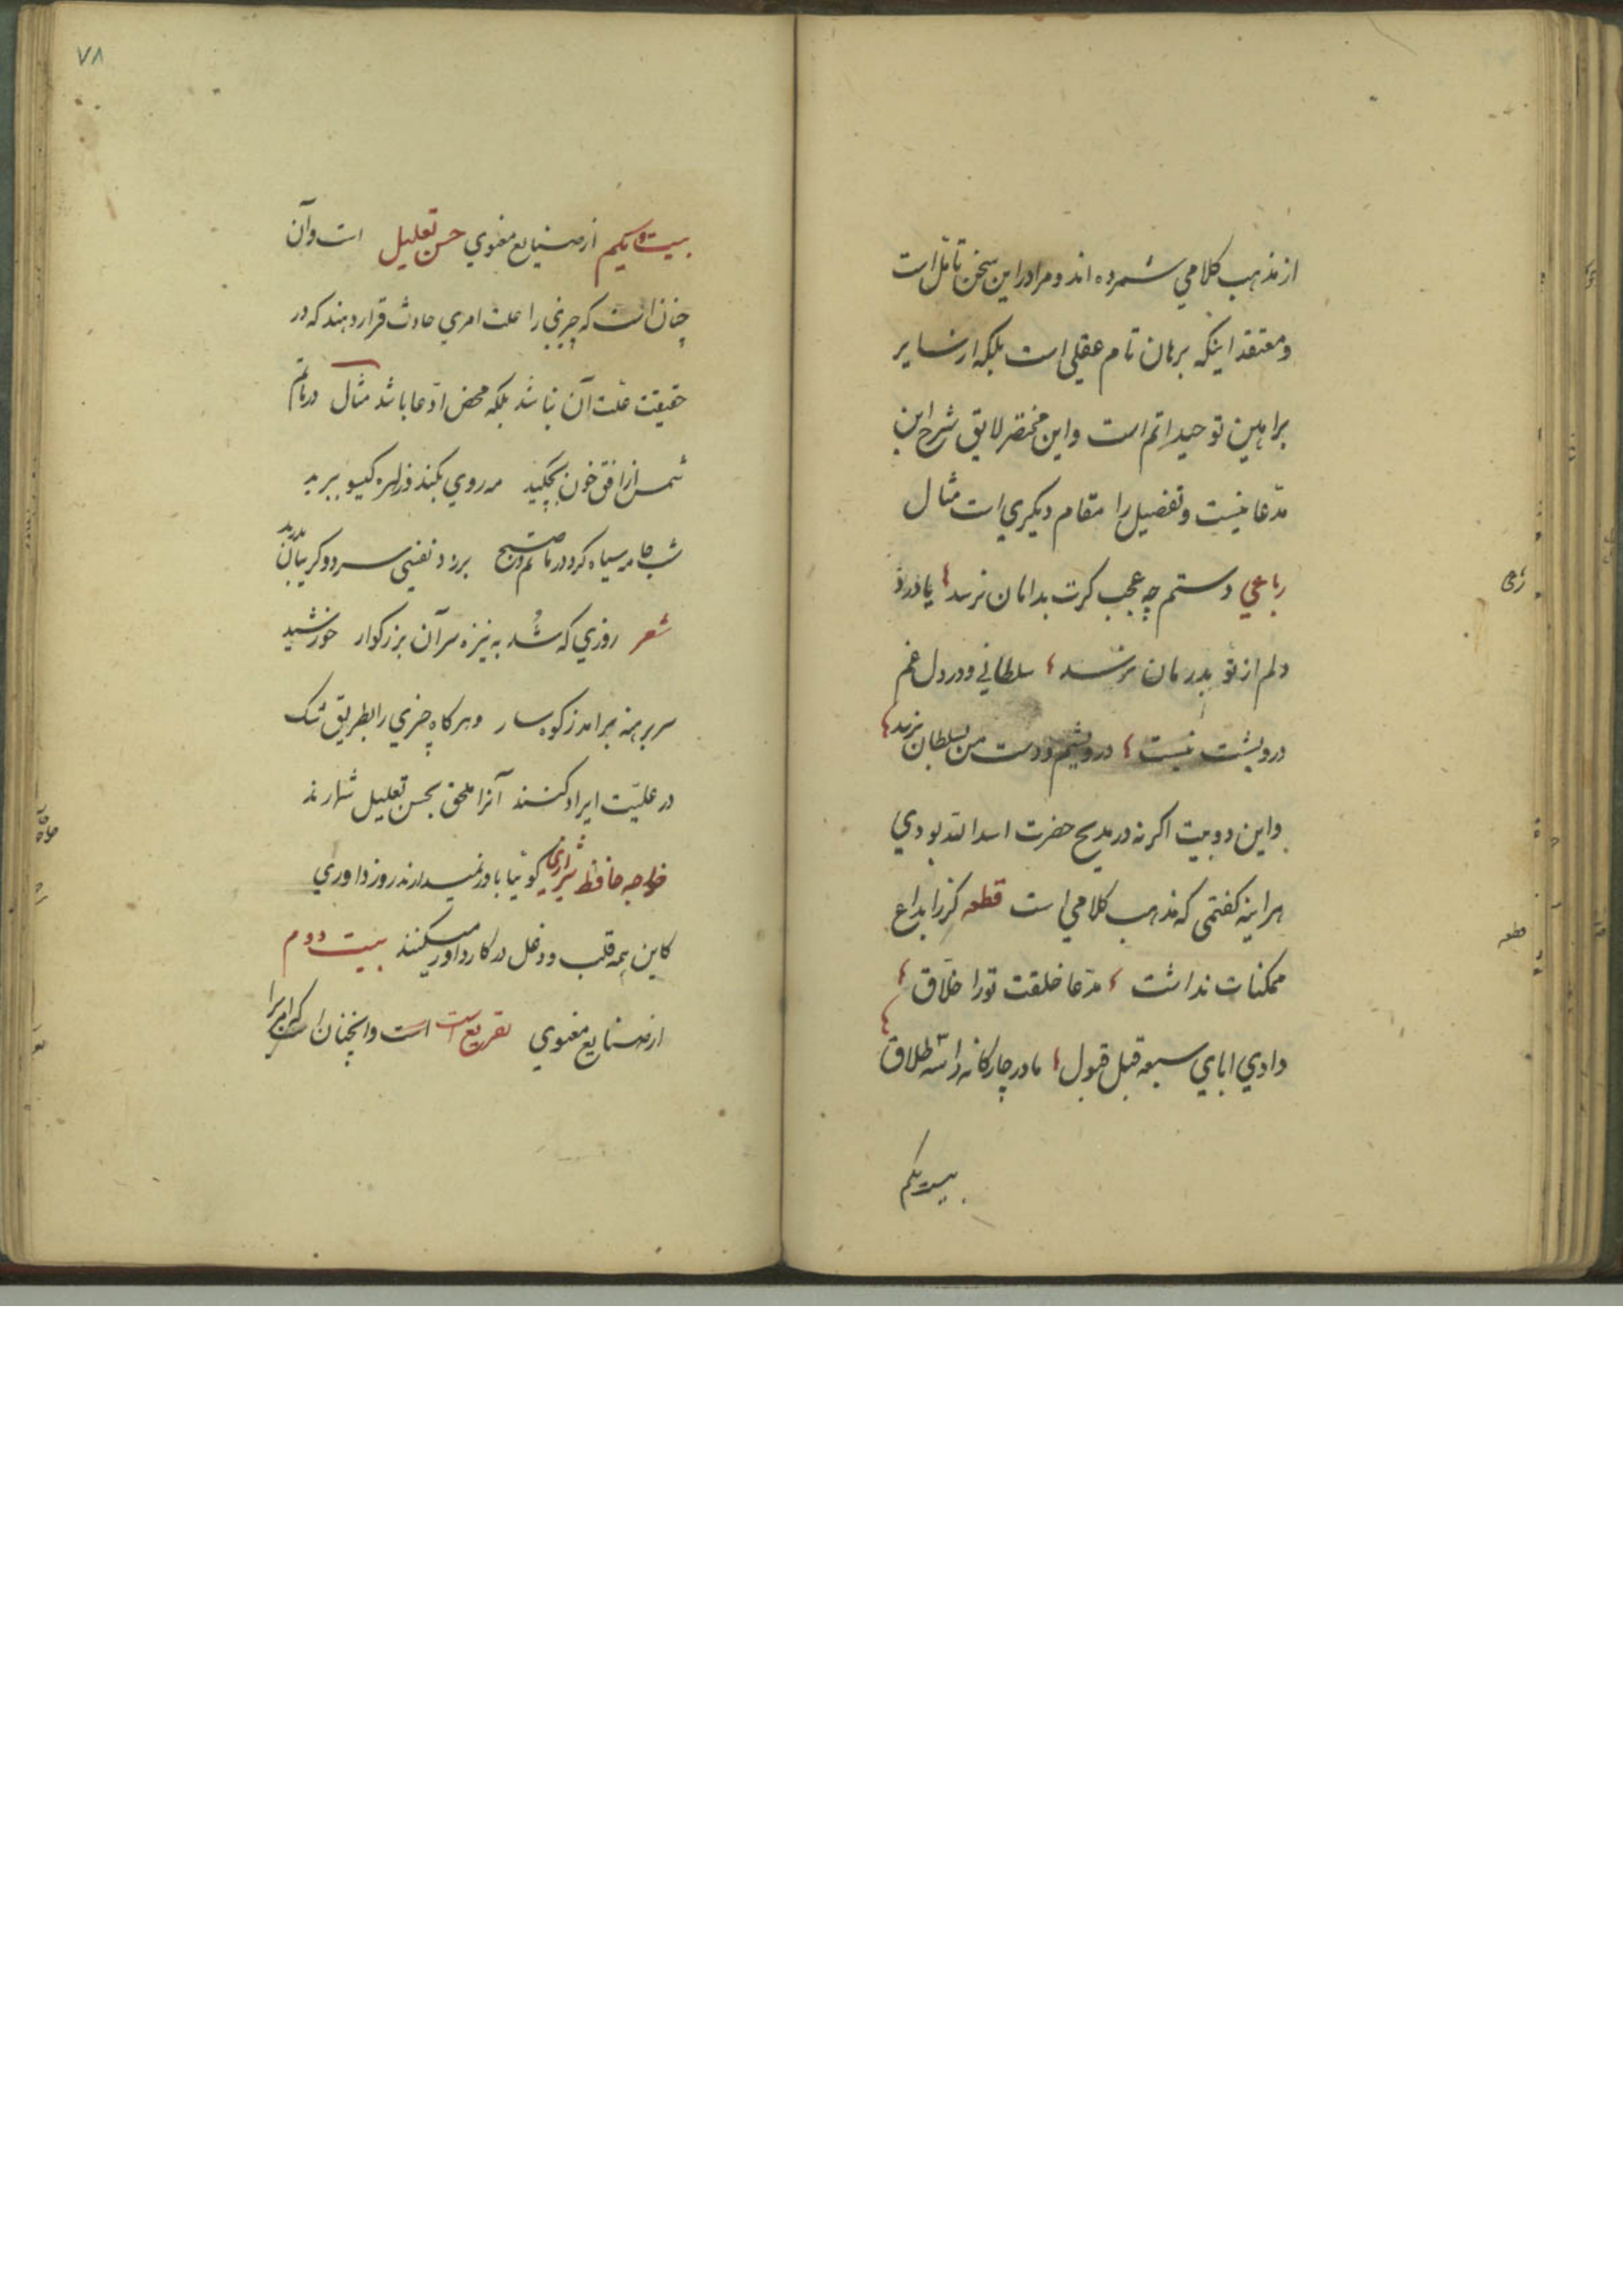 از مذهب کلامی شمرده اند و مرا در این سخن تامّل است
و معتقد اینکه برهان تام عقلی است بلکه از سایر
براهین توحید اتم است و این مختصر لایق شرح این
مدّعا نیست و تفصیل را مقام دیکری است مثال
رباعی دستم چه عجب کرت بدامان نرسد یا درد
دلم از تو بدرمان نرسد سلطانی و در دل غم
درویشت نیست درویشم و دست من بسلطان نرسد
و این دو بیت اکر نه در مدیح حضرت اسد الله بودی
هراینه کفتمی که مذهب کلامی است قطعه کرز ابداع
ممکنات نداشت مدّعا خلقت تو را خلّاق
دادی ابای سبعه قبل قبول مادر چارکانه را سه طلاق
بیست یکم
۷۸
بیست و یکیم از صنایع معنوی حسن تعلیل است و آن
چنان است که چیزی را علت امری حادث قرار دهند که در
حقیقت علّت آن نباشد بلکه محض ادّعا باشد مثال در ماتم
شمس از افق خون بچکید مه روی بکند و زهره کیسو ببرید
شب جامه سیاه کرد در ماتم و صبح برزد نفسی سرد و کریبان بدرید
شعر روزی که شُد به نیزه سر آن بزرکوار خورشید
سر برهنه برامد ز کوهسار و هر کاه چیزی را بطریق شک
در علیّت ایراد کنند آنرا ملحق بحسن تعلیل شمارند
خواجه حافظ شیرازی کوئیا باور نمیدارند روز داوری
کاین همه قلب و دغل در کار داور میکنند بیست دوم
از صنایع معنوی تفریع است است و انچنان است که امری را
رباعی
قطعه